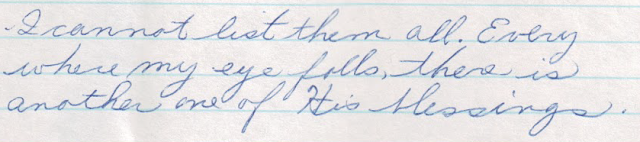 I cannot list them all. Every
where my eye falls, there is
another one of His blessings.